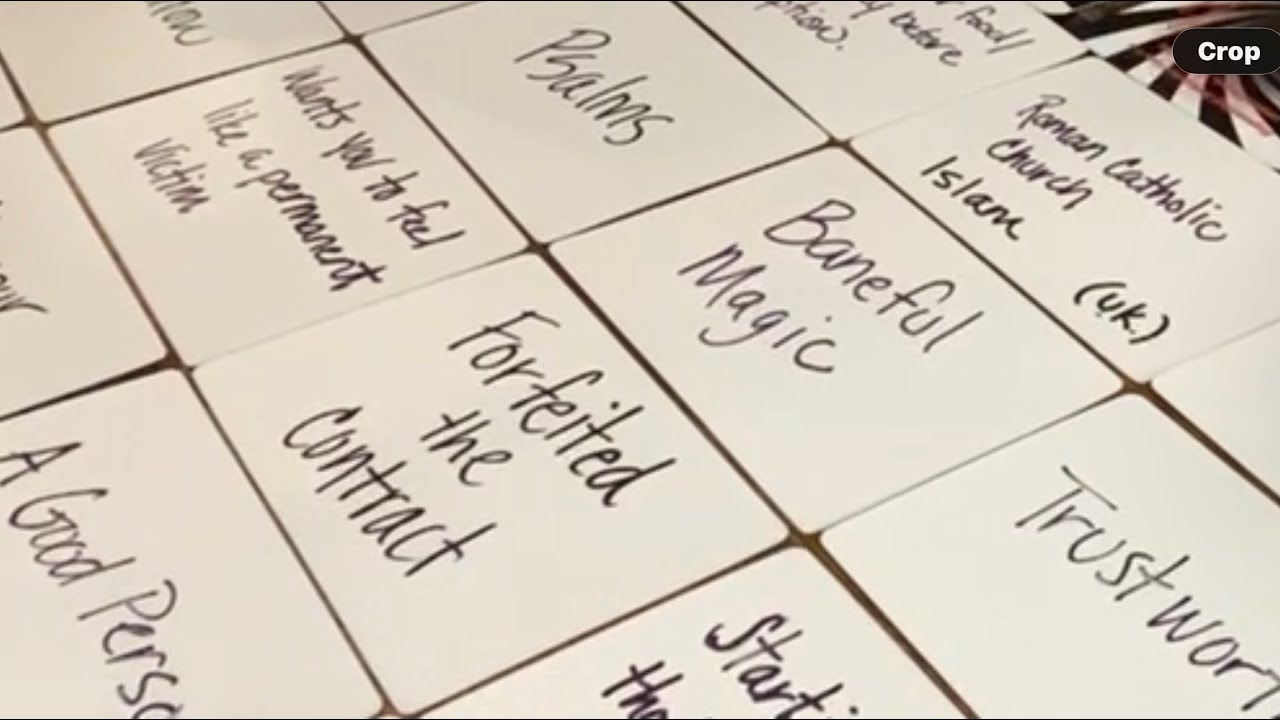 Psalms
food/
before
Crop
Wants you to feel
like a permanent
Victim
Roman Catholic
Church
Islam
(UK)
Baneful
Magic
Forfeited
the
Contract
A Good Perso
Trustwor
Starti